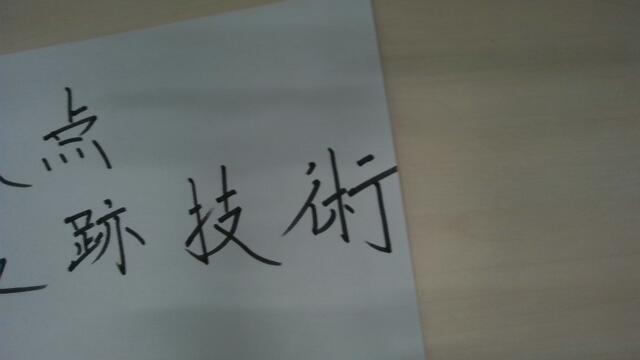 点
跡技術